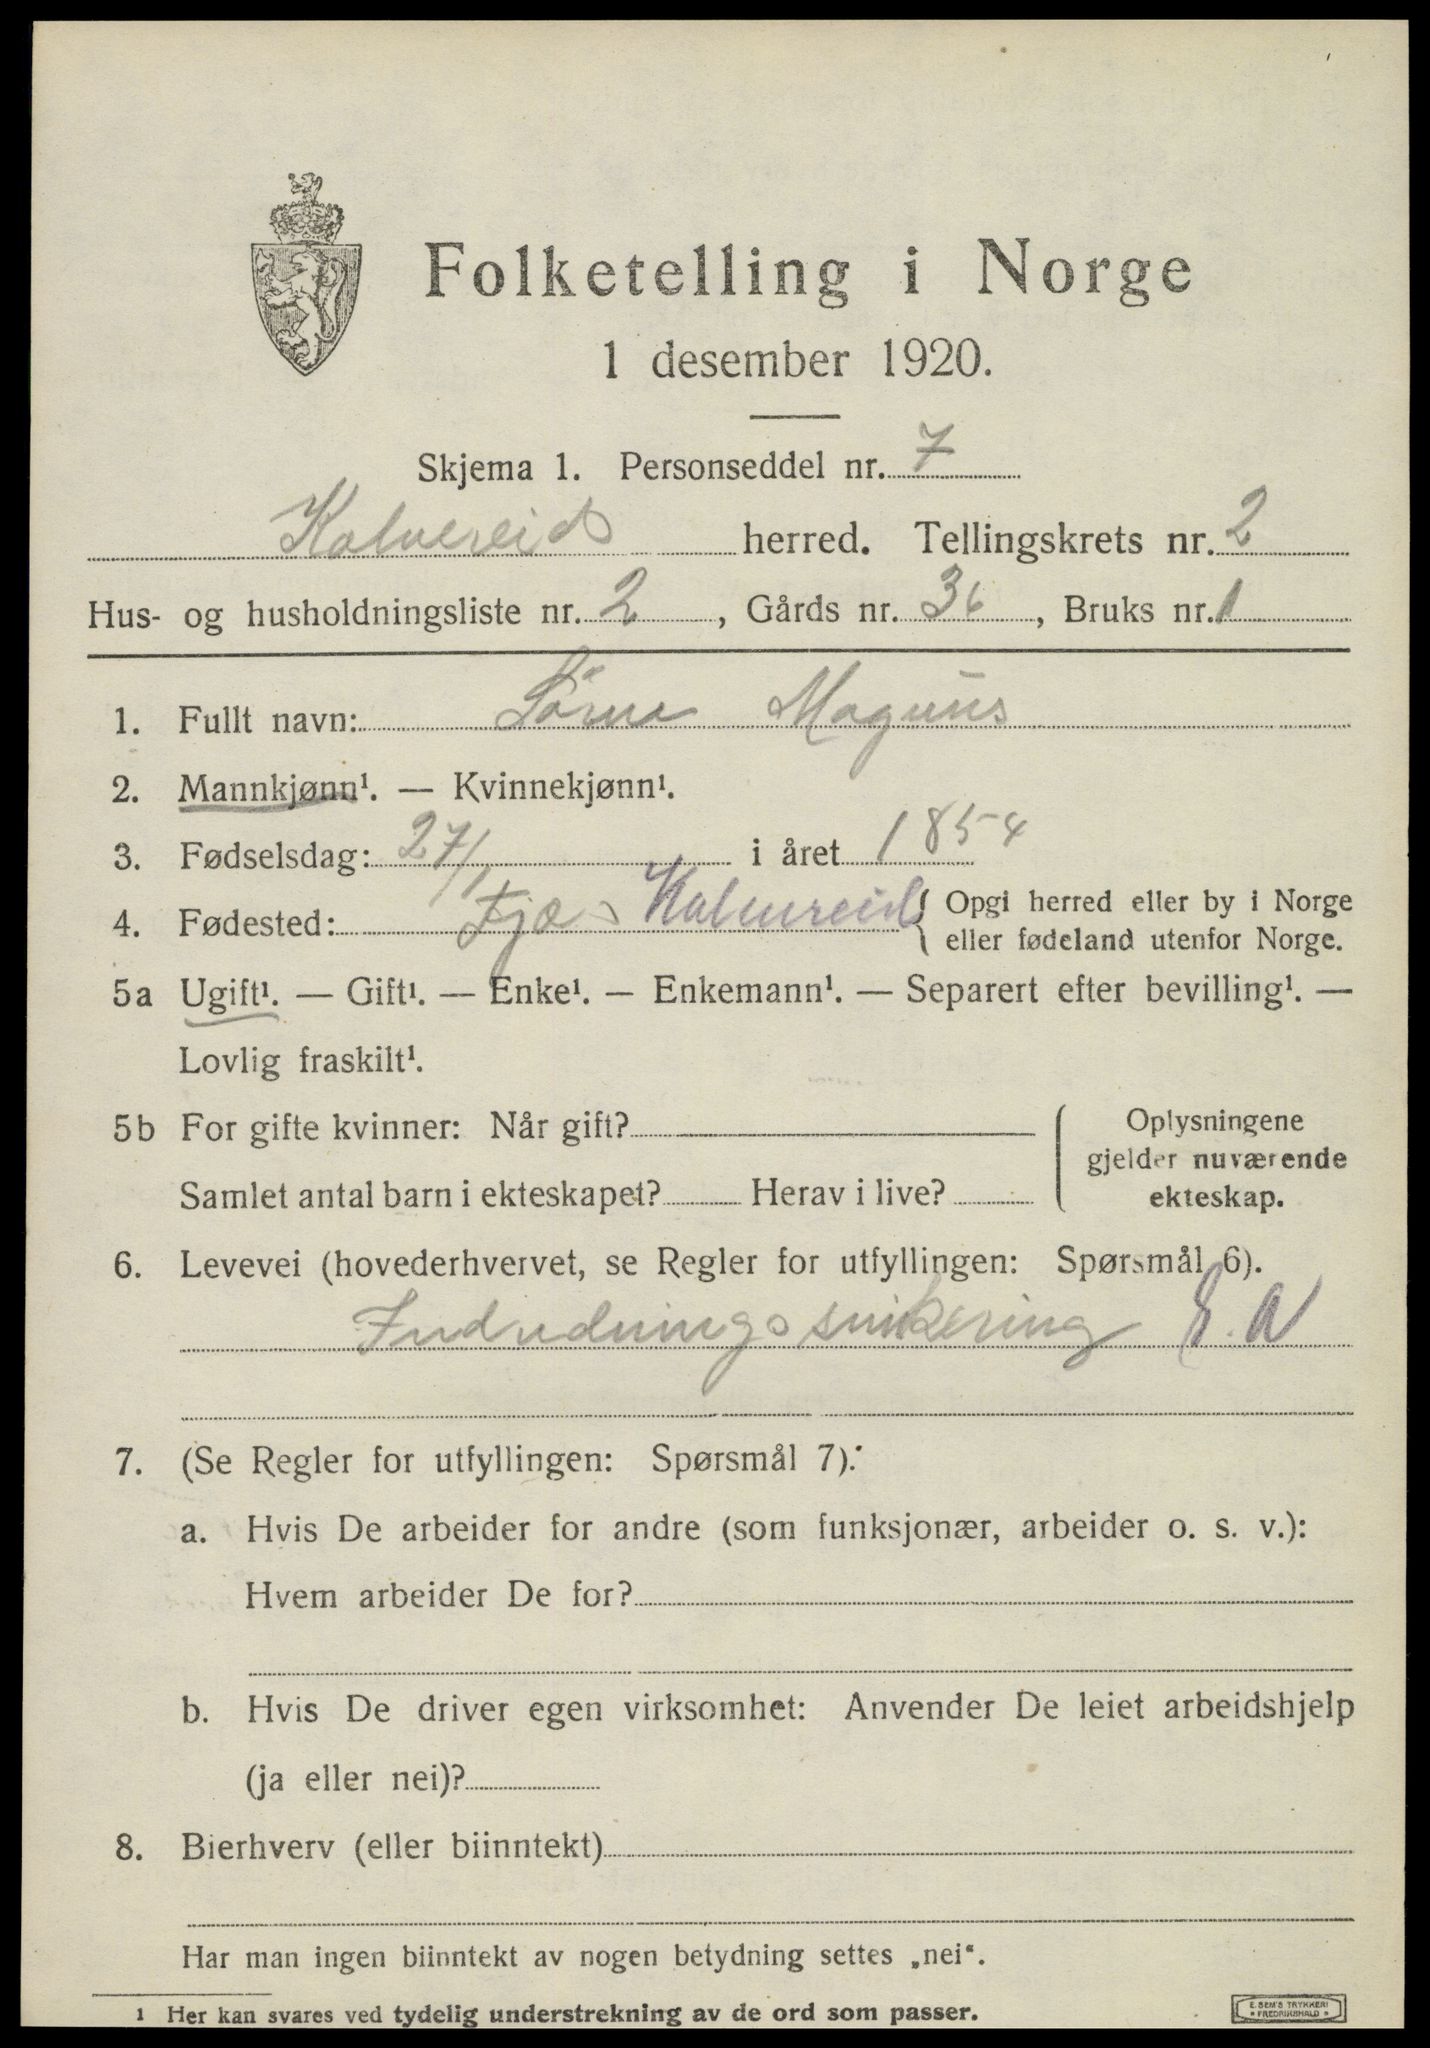 Folketelling i Norge
1 desember 1920.
Skjema 1. Personseddel nr. 7
Kalvereid herred. Tellingskrets nr. 2
Hus- og husholdningsliste nr. 2, Gårds nr. 36, Bruks nr. 1
1. Fullt navn: Magnus
2. Mannkjønn¹. — Kvinnekjønn¹.
3. Fødselsdag: 27/1 i året 1854
4. Fødested: Kalvereid { Opgi herred eller by i Norge
eller fødeland utenfor Norge.
5a Ugift¹. — Gift¹. — Enke¹. — Enkemann¹. — Separert efter bevilling¹. —
Lovlig fraskilt¹.
5b For gifte kvinner: Når gift? { Oplysningene
gjelder nuværende
Samlet antal barn i ekteskapet? Herav i live? ekteskap.
6. Levevei (hovederhvervet, se Regler for utfyllingen: Spørsmål 6).
Indredningssnikering
7. (Se Regler for utfyllingen: Spørsmål 7):
a. Hvis De arbeider for andre (som funksjonær, arbeider o. s. v.):
Hvem arbeider De for?
b. Hvis De driver egen virksomhet: Anvender De leiet arbeidshjelp
(ja eller nei)?
8. Bierhverv (eller biinntekt)
Har man ingen biinntekt av nogen betydning settes „nei“.
1 Her kan svares ved tydelig understrekning av de ord som passer.
E. SEM'S TRYKKERI
FREDRIKSHALD